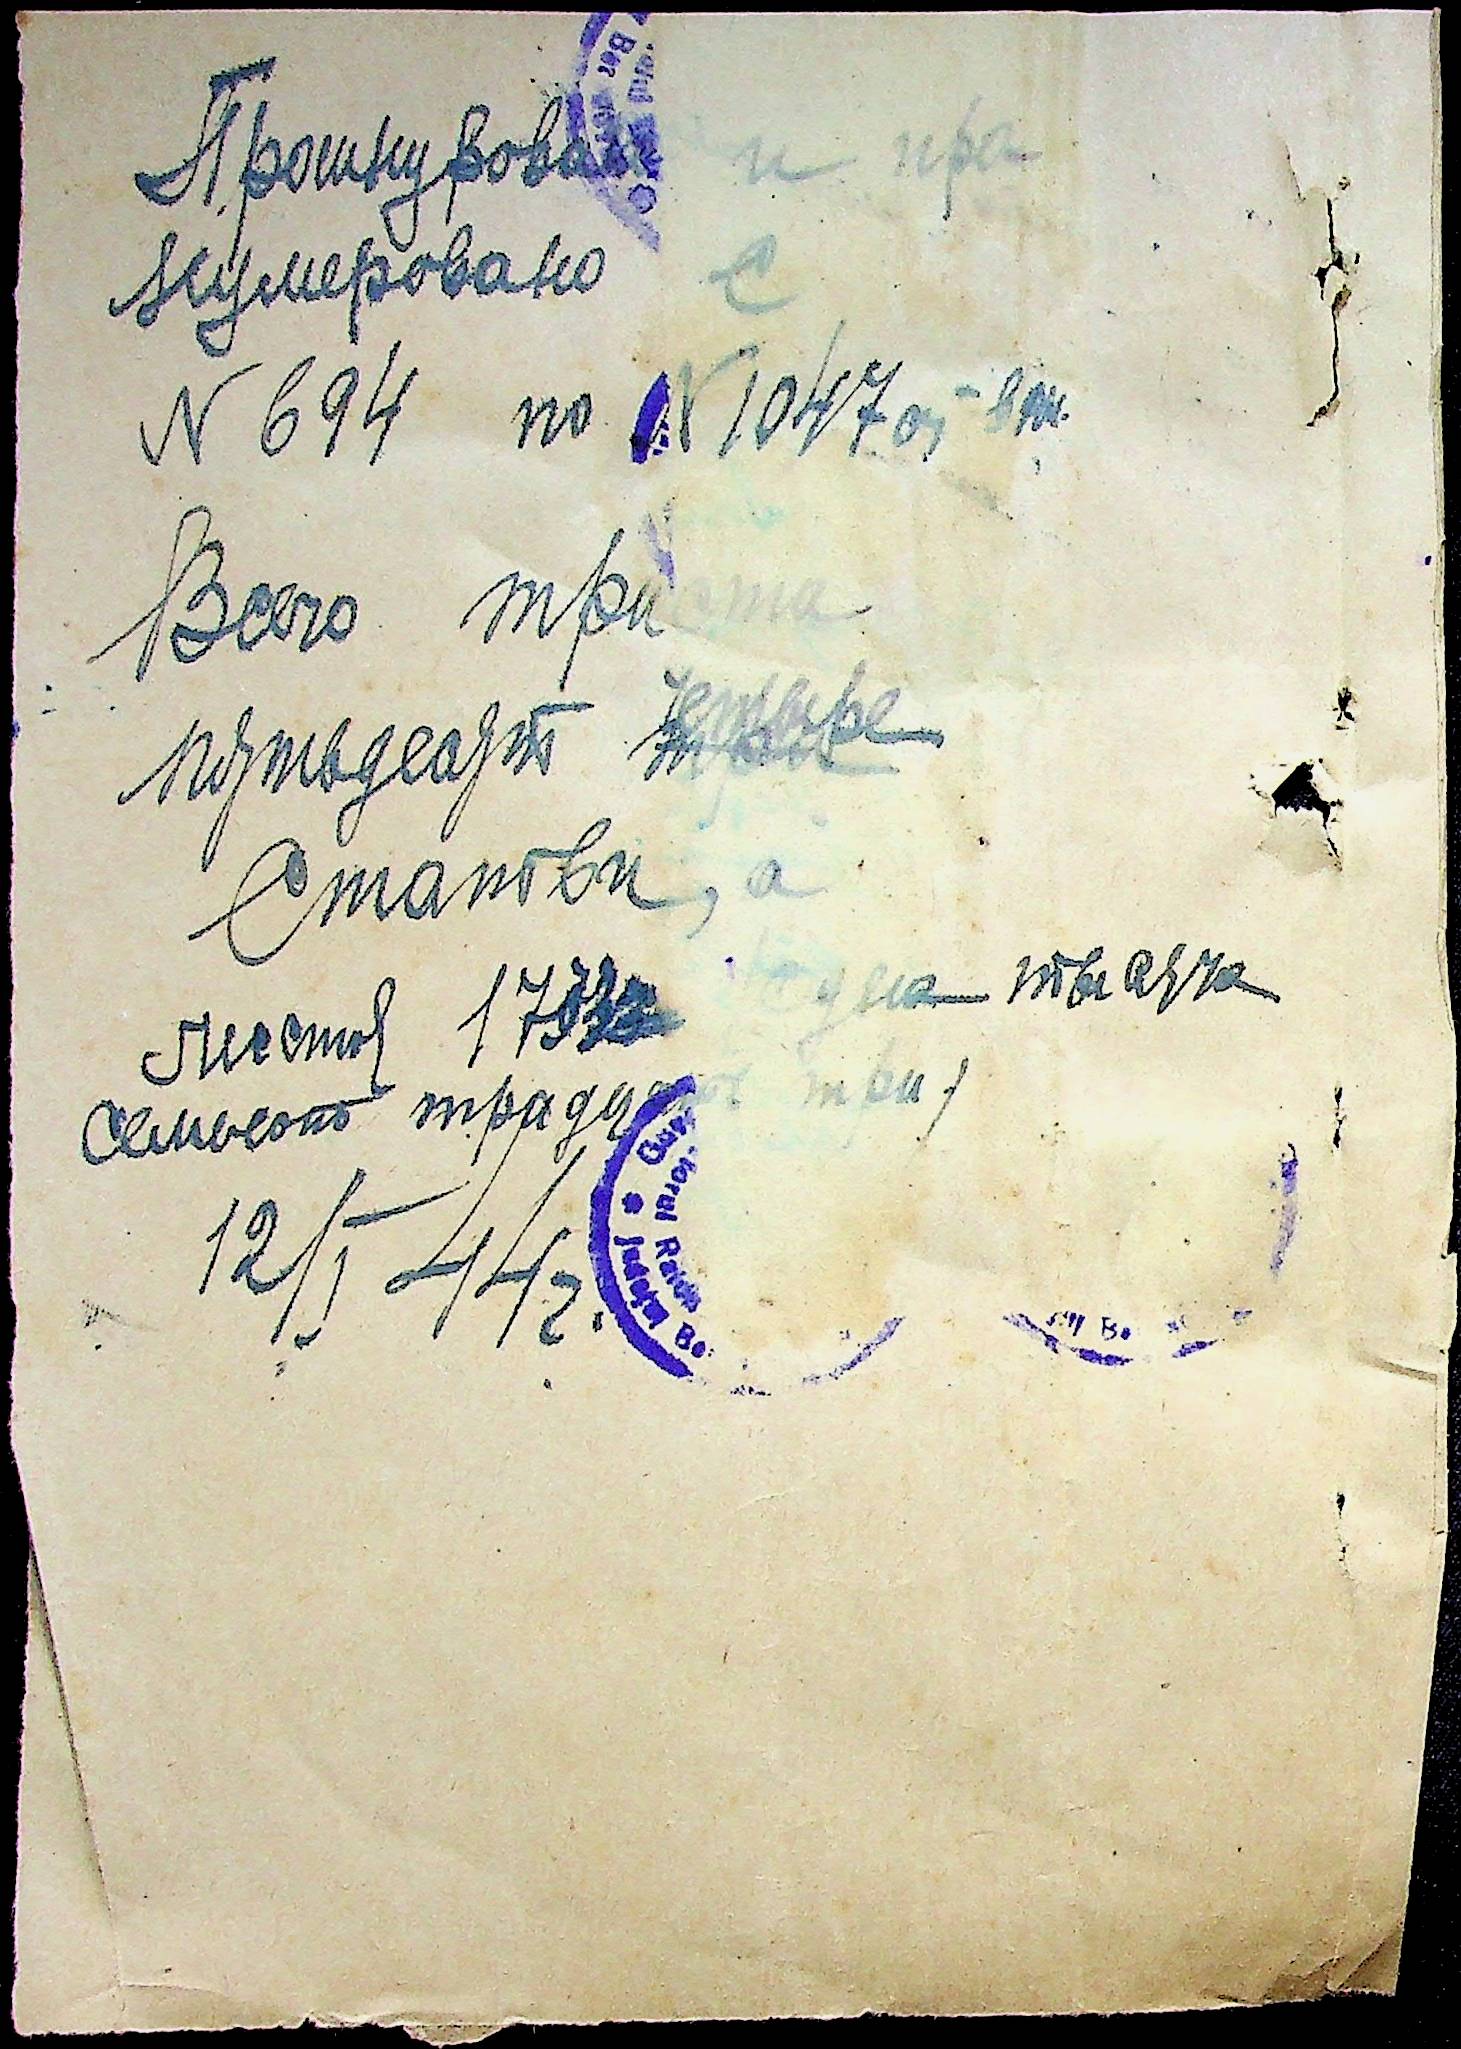 Прошнуровано и пра
нумеровано с
N 694 по N 1047 от вкл.
Всего триста
пятьдесят четыре
Статови, а
листов 173 одна тысяча
семьсот традцать три)
12/I 44 г.
torul Raio
judeţul Be